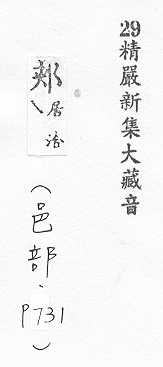 29精嚴新集大藏音
郟居洽
(邑部.
P731)